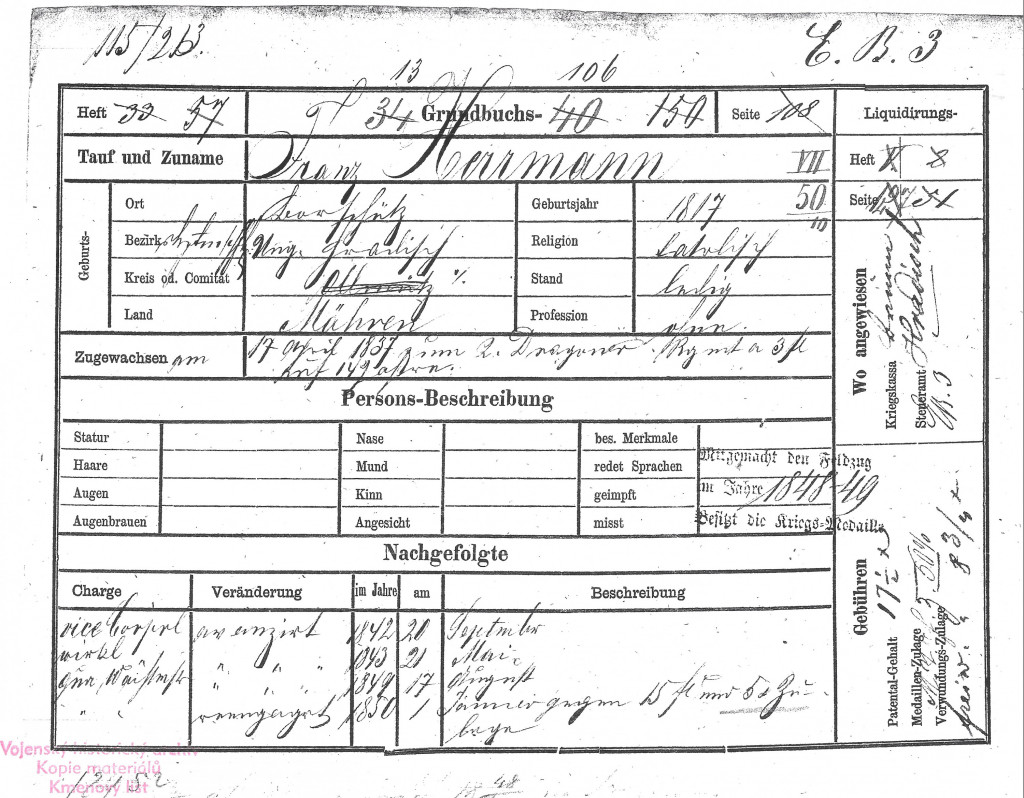 115/263.
E. B. 3
13 106
Heft 33 57 34 Grundbuchs- 40 150 Seite 108 Liquidirungs-
Tauf und Zuname Franz Herrmann VII Heft X 8
Geburts-
Ort Borschütz Geburtsjahr 1817 50/10 Seite 51
Bezirk Ung. Hradisch Religion Catolisch
Kreis od. Comität Ollmütz % Stand ledig
Land Mähren Profession ohne.
Zugewachsen am 17 April 1837 zum 2. Dragoner Rgmt a 3 fl
auf 14
Wo angewiesen
Kriegskassa Brünn
Steueramt Hradisch
B. 3
Persons-Beschreibung
Statur Nase bes. Merkmale
Haare Mund redet Sprachen
Augen Kinn geimpft
Augenbrauen Angesicht misst
Mitgemacht den Feldzug
im Jahre 1848-49
Besitzt die Kriegs-Medaille
Nachgefolgte
Charge Veränderung im Jahre am Beschreibung
vice Corporl avanzirt 1842 20 September
wirkl " " " 1843 21 Mai
qua, Wachtmstr " " " 1849 17 August
" " reengagirt 1850 1 Jänner gegen 15 fl und 5 x Zu-
lage
Gebühren
Patental-Gehalt 17 1/2 x
Medaillen-Zulage
Verwundungs-Zulage 8 3/4 x
Vojenský historický archiv
Kopie materiálů
Kmenový list
48